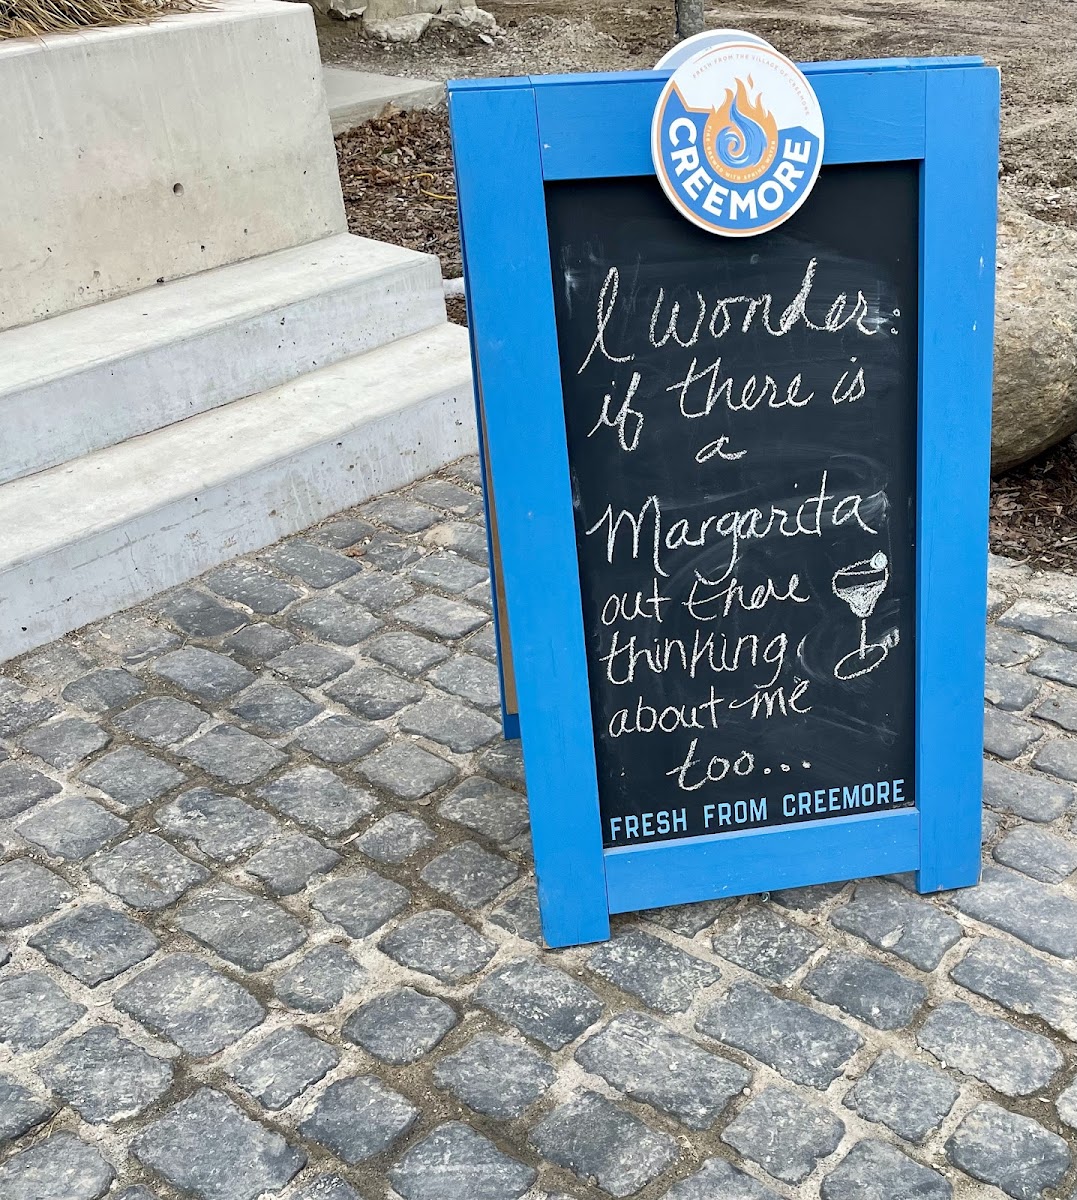 FRESH FROM THE VILLAGE OF CREEMORE
FIRE BREWED WITH SPRING WATER
CREEMORE
I wonder:
if there is
a
Margarita
out there
thinking
about me
too...
FRESH FROM CREEMORE